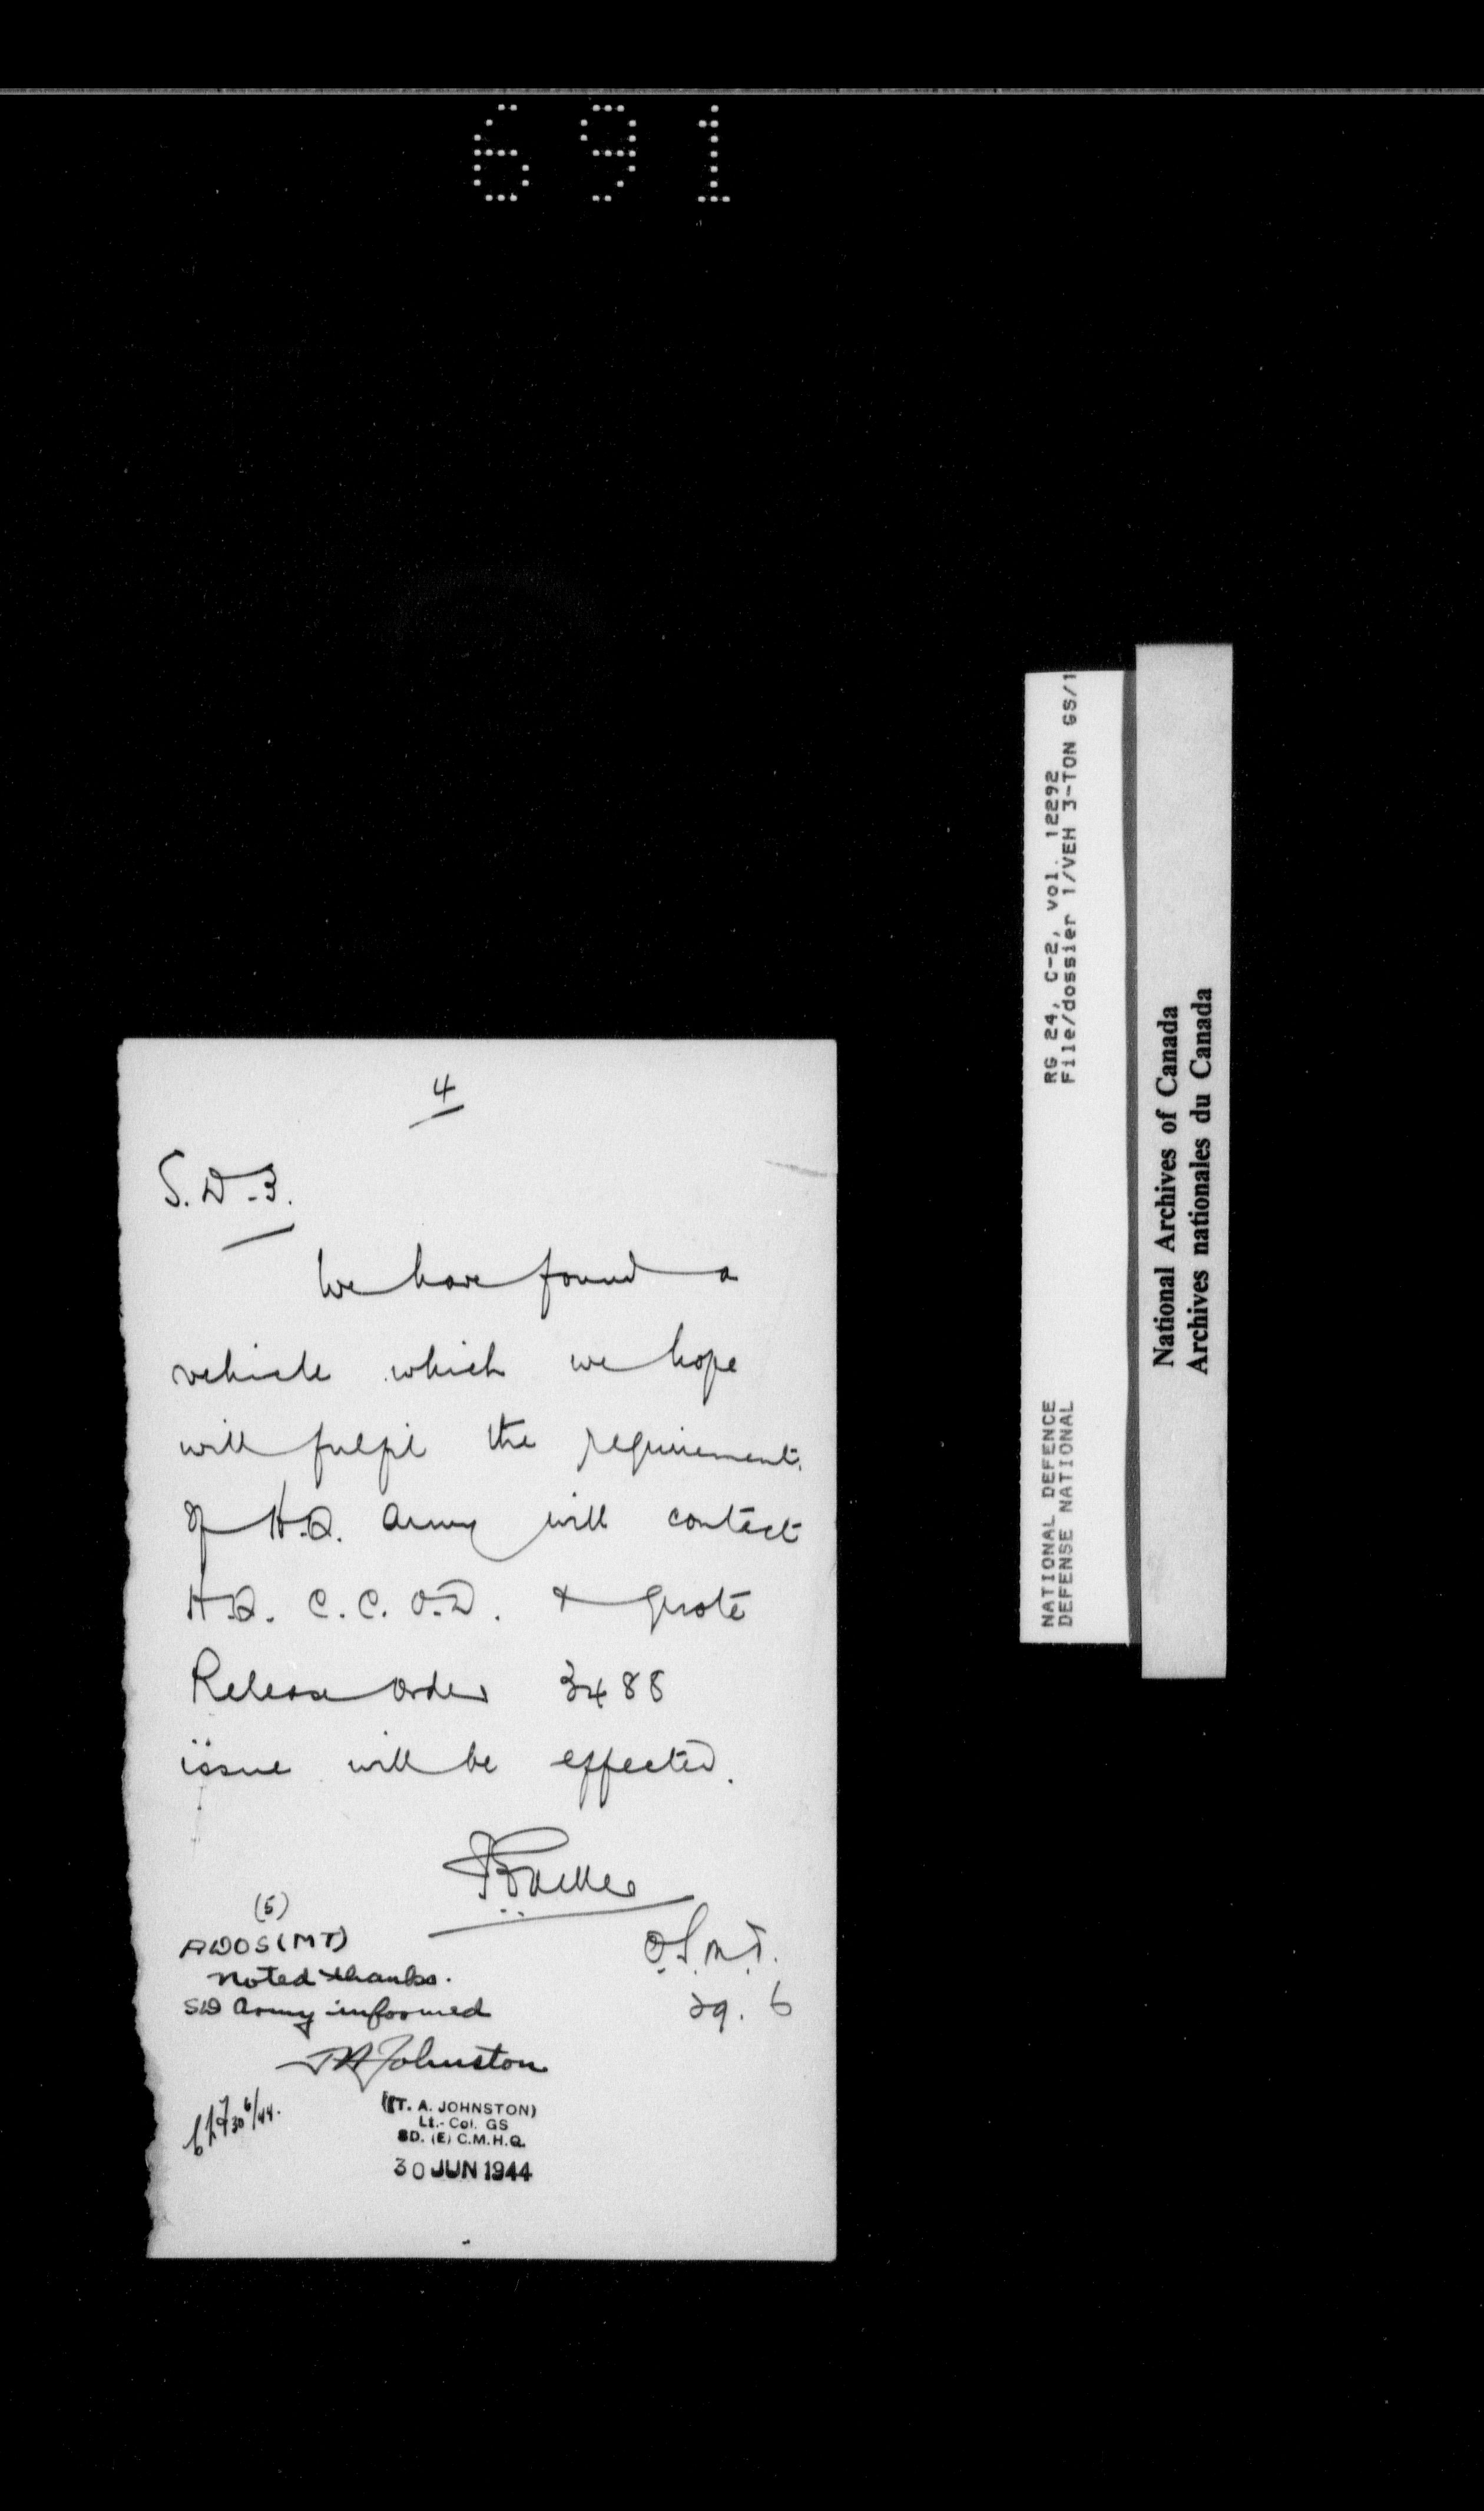 691
4
S.D.3.
We have found a
vehicle which we hope
will fulfil the requirement.
If H.Q. Army will contact
H.Q. C.C.O.D. & quote
Release order 3488
issue will be effected.
O.S.M.T.
29. 6
(5)
ADOS (MT)
Noted thanks.
SD Army informed
TAJohnston
30 6/44.
(T. A. JOHNSTON)
Lt.-Col. GS
SD. (E) C.M.H.Q.
30 JUN 1944
NATIONAL DEFENCE RG 24, C-2, vol. 12292
DEFENSE NATIONAL File/dossier 1/VEH 3-TON GS/1
National Archives of Canada
Archives nationales du Canada